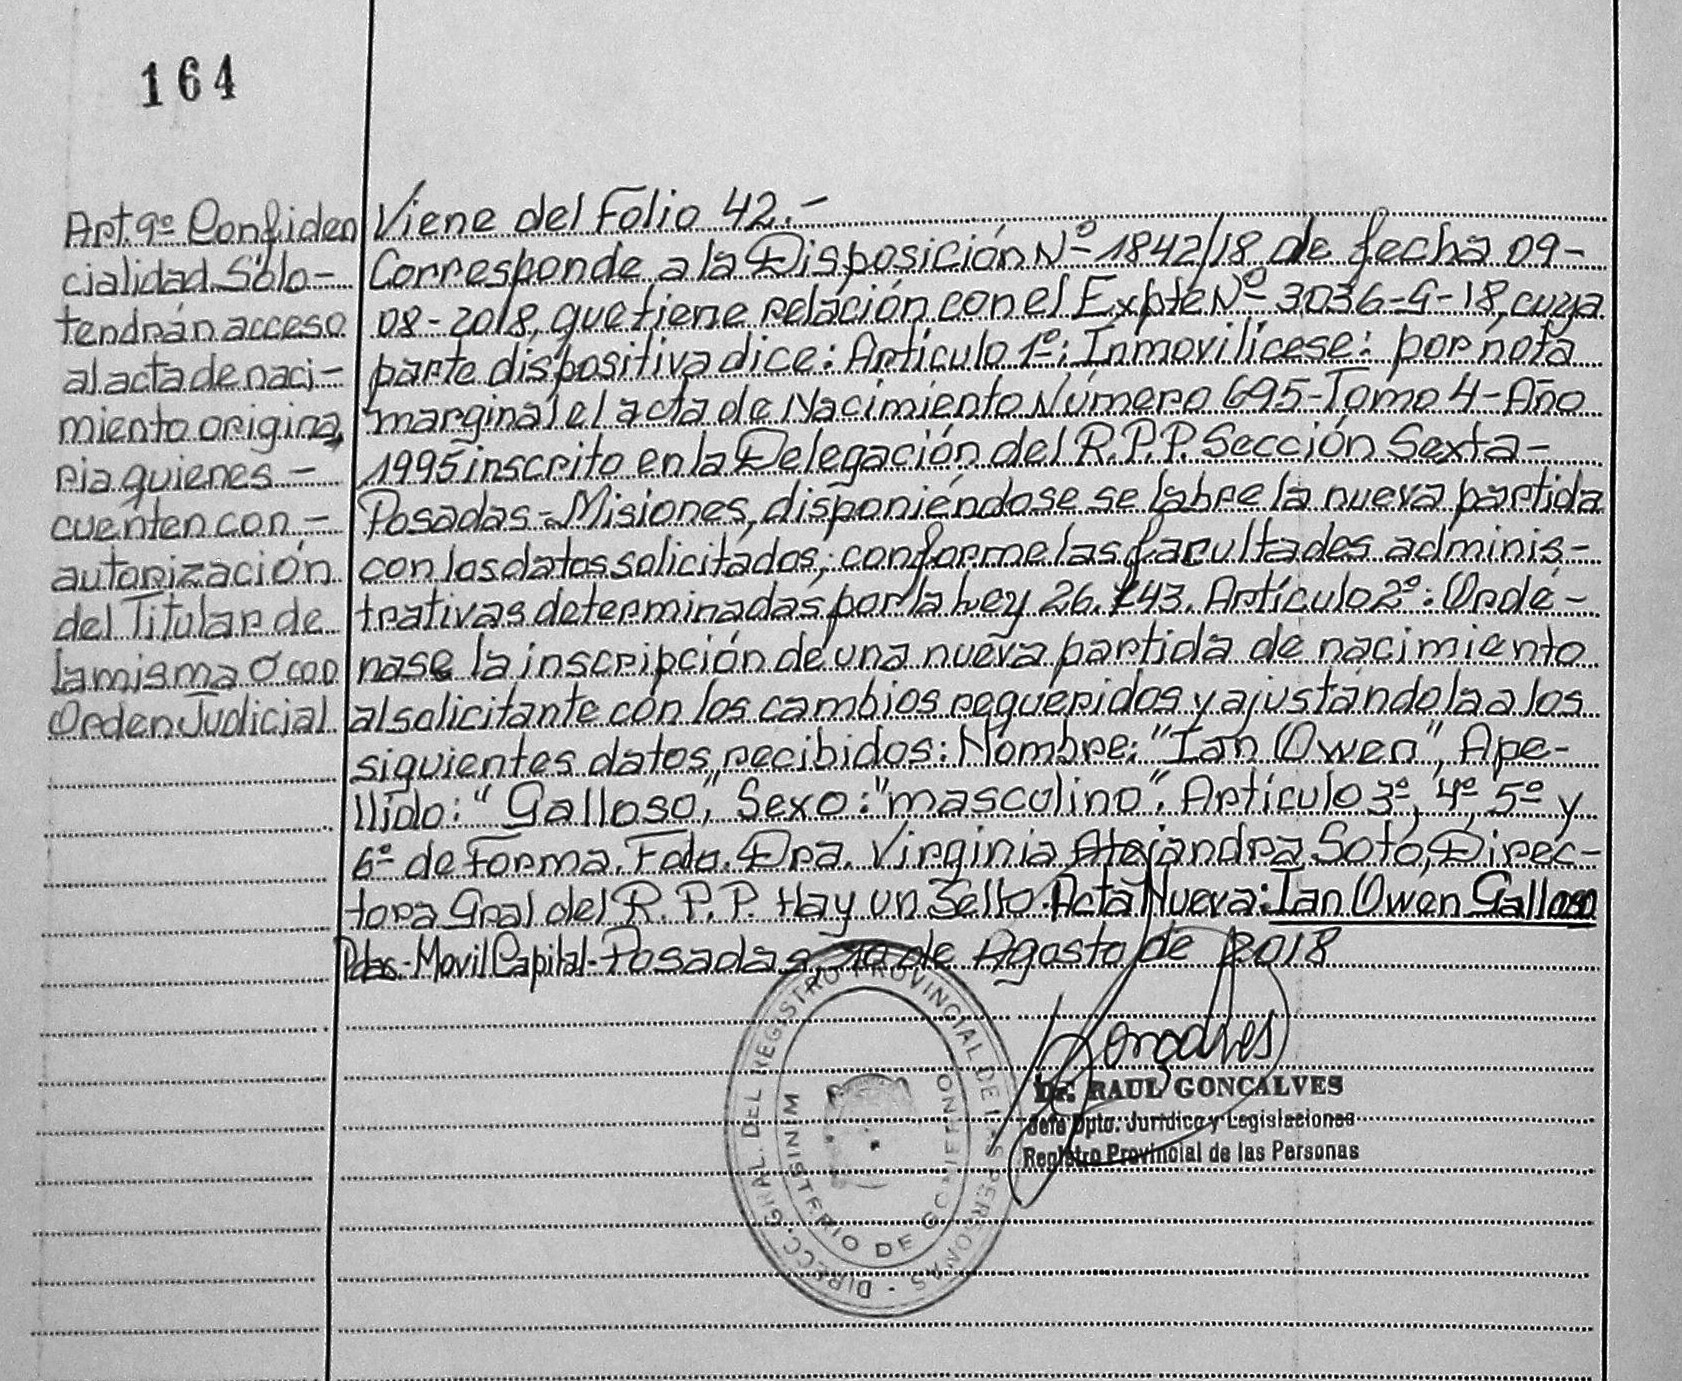 164
Art. 9º Confiden
cialidad Sólo -
tendrán acceso
al acta de naci -
miento origina
ria quienes -
cuenten con -
autorización
del Titular de
la misma o con
Orden Judicial
Viene del Folio 42.-
Corresponde a la Disposición Nº 1842/18 de fecha 09-
08-2018, que tiene relación con el Expte Nº 3036-G-18, cuya
parte dispositiva dice: Artículo 1º: Inmovilícese: por nota
marginal el acta de Nacimiento Número 695-Tomo 4-Año
1995 inscrito en la Delegación del R.P.P. Sección Sexta -
Posadas - Misiones, disponiéndose se labre la nueva partida
con los datos solicitados; conforme las facultades adminis-
trativas determinadas por la Ley 26.743. Artículo 2º: Ordé -
nase la inscripción de una nueva partida de nacimiento
al solicitante con los cambios requeridos y ajustándola a los
siguientes datos recibidos: Nombre: "Ian Owen", Ape-
llido: "Galloso", Sexo: "masculino". Artículo 3º, 4º, 5º y
6º de Forma. Fdo. Dra. Virginia Alejandra Soto, Direc-
tora Gral del R.P.P. Hay un Sello. Acta Nueva: Ian Owen Galloso
Pdas.-Movil Capital-Posadas, 10 de Agosto de 2018
DIRECC. GRAL. DEL REGISTRO PROVINCIAL DE LAS PERSONAS
MINISTERIO DE GOBIERNO
Goncalves
Dr. RAUL GONCALVES
Jefe Dpto. Jurídico y Legislaciones
Registro Provincial de las Personas